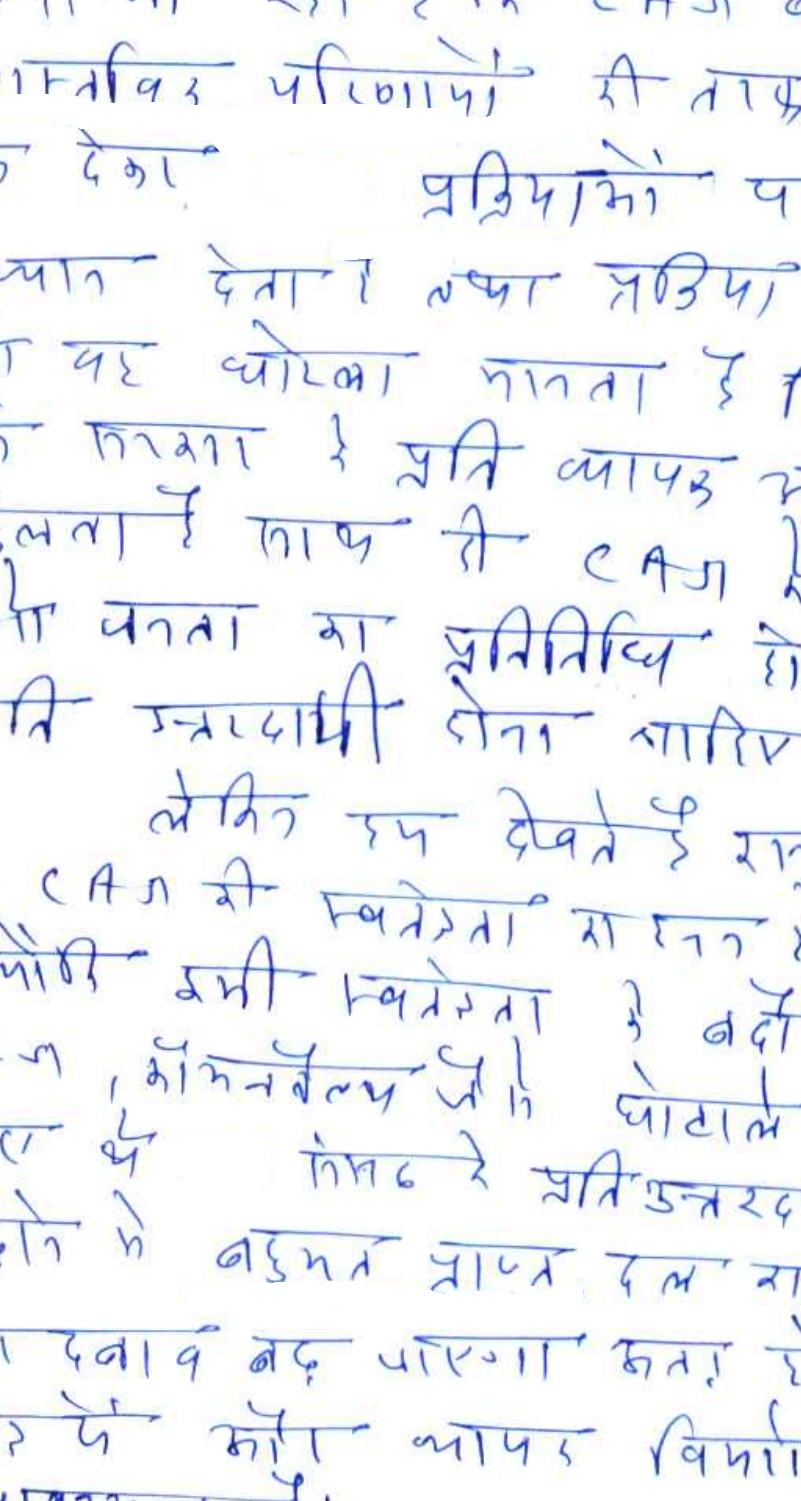 वास्तविक परिणामों की ताक
देकर प्रक्रियाओं प
ध्यान देता है तथा प्रक्रिया
यह घोटाला मानता है
सरकार के प्रति व्यापक
चलता है साथ ही CAG के
जनता का प्रतिनिधि हो
प्रति उत्तरदायी होना चाहिए
लेकिन हम देखते है
CAG की स्वतंत्रता का हनन
क्योंकि इसी स्वतंत्रता के बदौ
कॉमनवेल्थ जैसे घोटाले
थे संसद के प्रति उत्तरद
होने से बहुमत प्राप्त दल का
दबाव बढ़ जाएगा अतः
में और व्यापक विमर्श